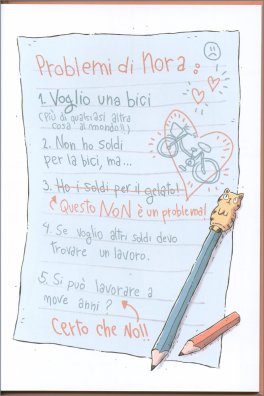 Problemi di Nora:
1. Voglio una bici
(Più di qualsiasi altra
cosa al mondo!!)
2. Non ho soldi
per la bici, ma...
3. Ho i soldi per il gelato!
Questo NON è un problema!
4. Se voglio altri soldi devo
trovare un lavoro.
5. Si può lavorare a
nove anni?
Certo che No!!